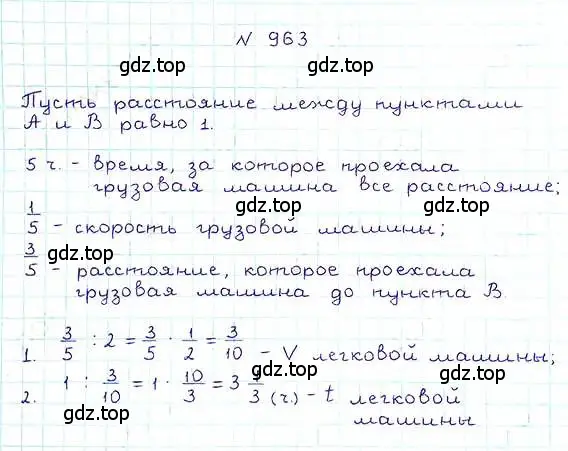 N 963
gdz.top
gdz.top
Пусть расстояние между пунктами
А и В равно 1.
5 ч. - время, за которое проехала
грузовая машина все расстояние;
gdz.top
gdz.top
1/5 - скорость грузовой машины;
gdz.top
3/5 - расстояние, которое проехала
грузовая машина до пункта В.
gdz.top
1. 3/5 : 2 = 3/5 · 1/2 = 3/10 - V легковой машины;
gdz.top
2. 1 : 3/10 = 1 · 10/3 = 3 1/3 (ч.) - t легковой
машины
gdz.top
gdz.top